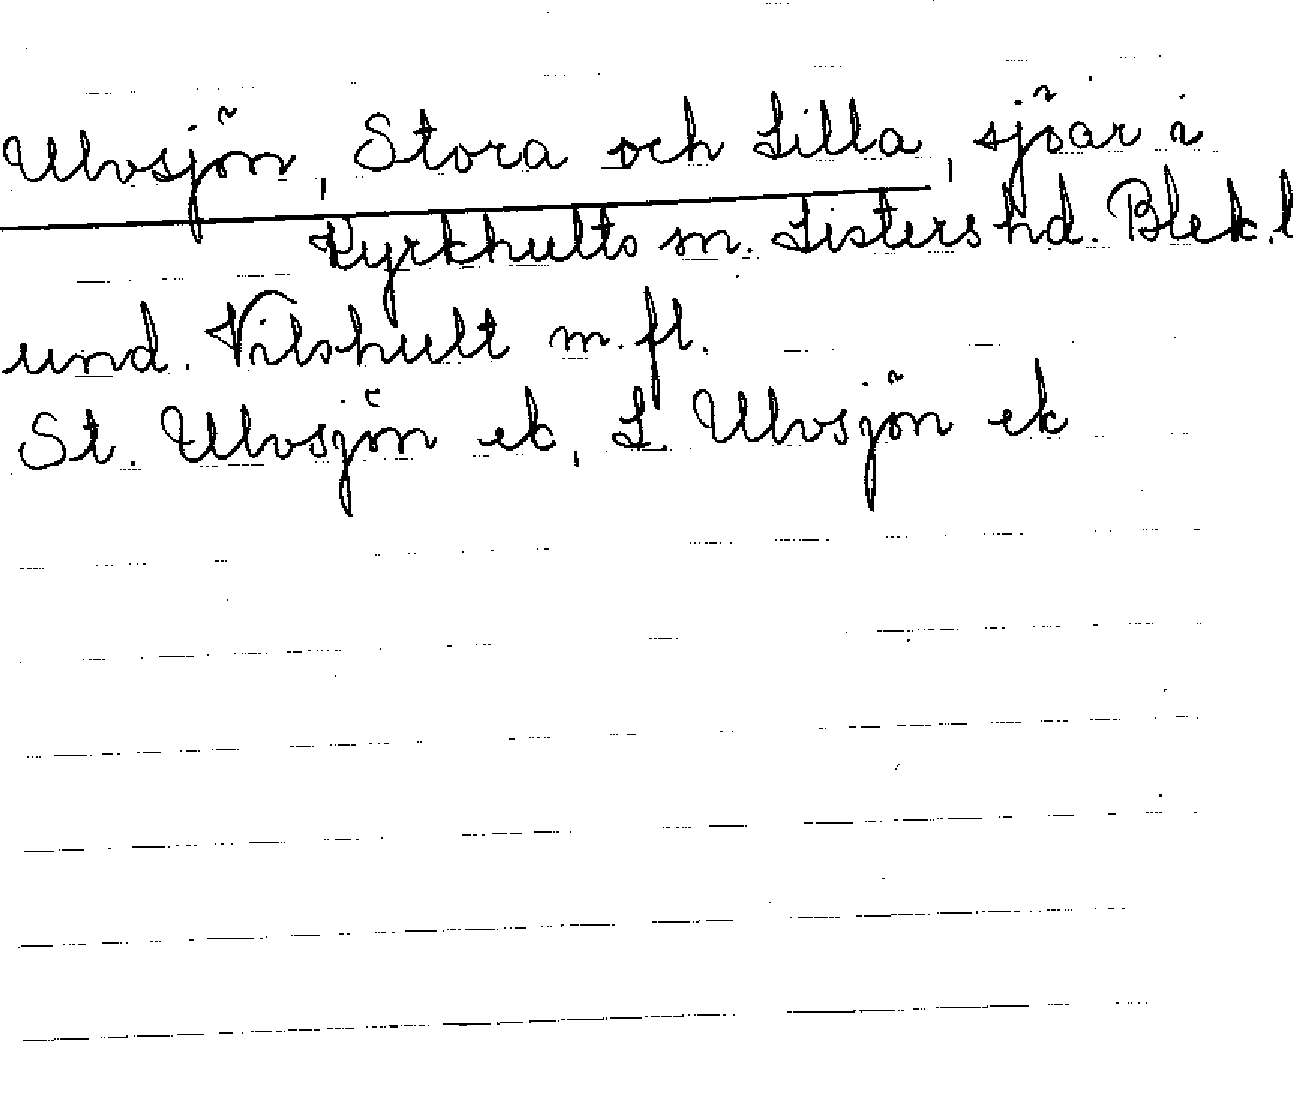 Ulvsjön, Stora och Lilla, sjöar i
Kyrkhults sn. Listers hd. Blek. l
und. Vilshult m. fl.
St. Ulvsjön ek, L. Ulvsjön ek